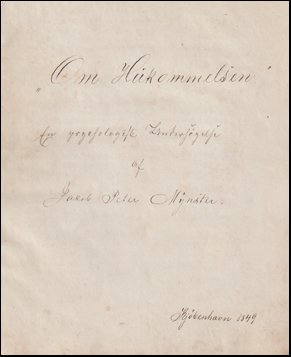 "Om Hukommelsen"
En psychologisk Undersögelse
af
Jakob Peter Mynster.
Kjöbenhavn 1849